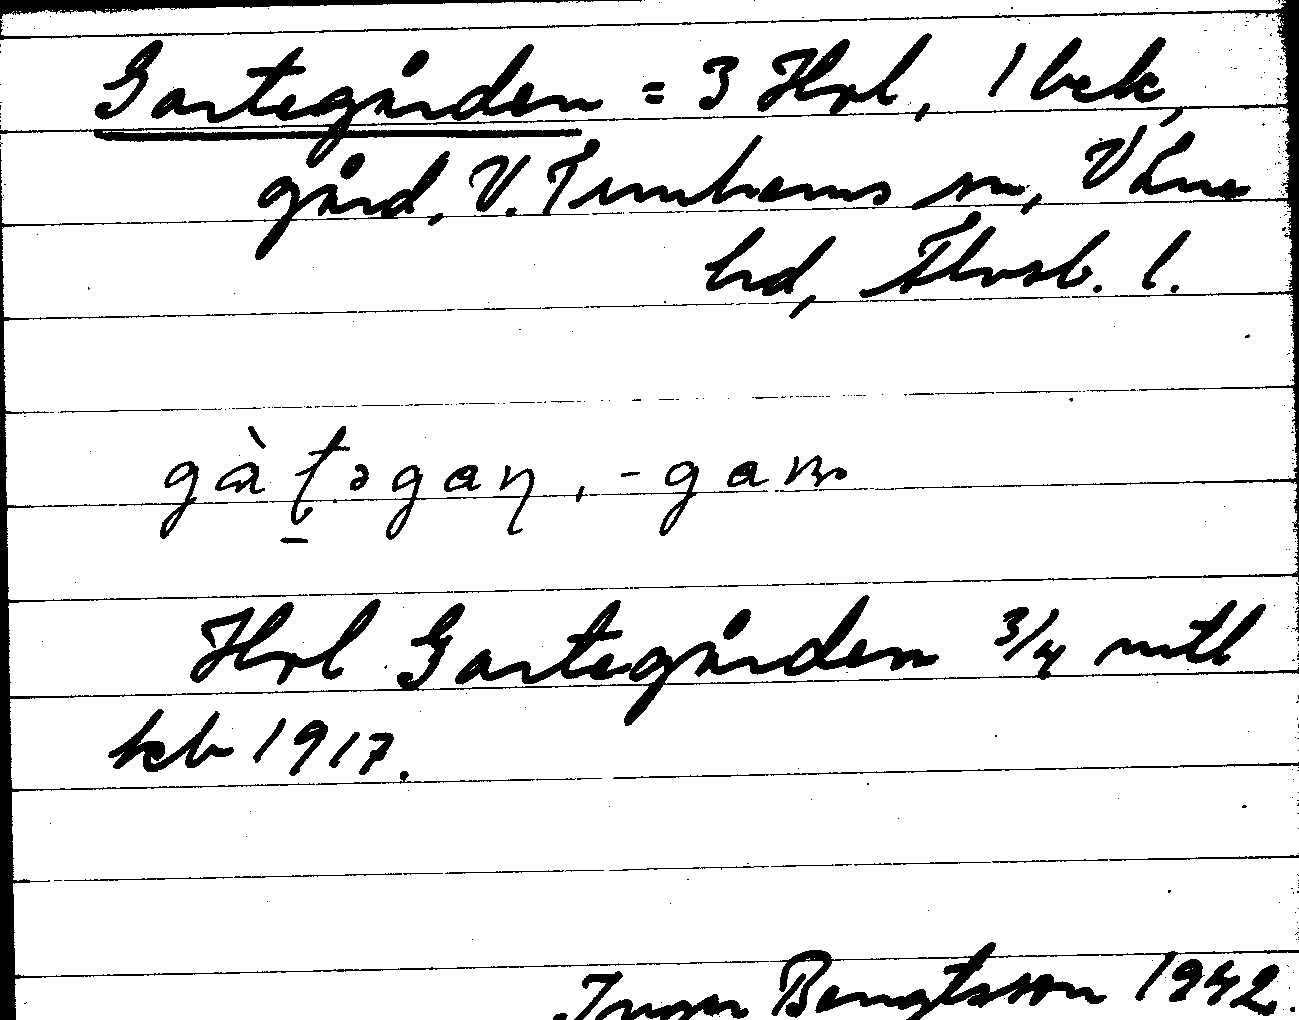 Gartegården = 3 Hrl, 1 bek,
gård, V. Tunhems sn, Väne
hd, Älvsb. l.
gàʈəgaɳ, -gam
Hrl Gartegården 3/4 mtl
kb 1917.
Inger Bengtsson 1942.